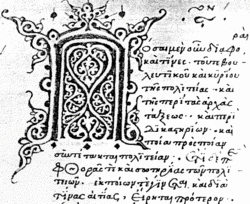 ραι
Πόσαι μὲν οὖν διαφο
καὶ τίνες. τοῦ τε βου
λευτικοῦ καὶ κυρίου
τῆς πολιτείας. καὶ
τῆς περὶ τὰς ἀρχὰς
τάξεως. καὶ περὶ
δικαστηρίων. καὶ
ποία πρὸς ποίαν
συντέτακται πολιτείαν. ἔτι δὲ περὶ
φθορᾶς τε καὶ σωτηρίας τῶν πολι
τειῶν. ἐκ ποίων τε γίνεται καὶ διὰ
τίνας αἰτίας, εἴρηται πρότερον.